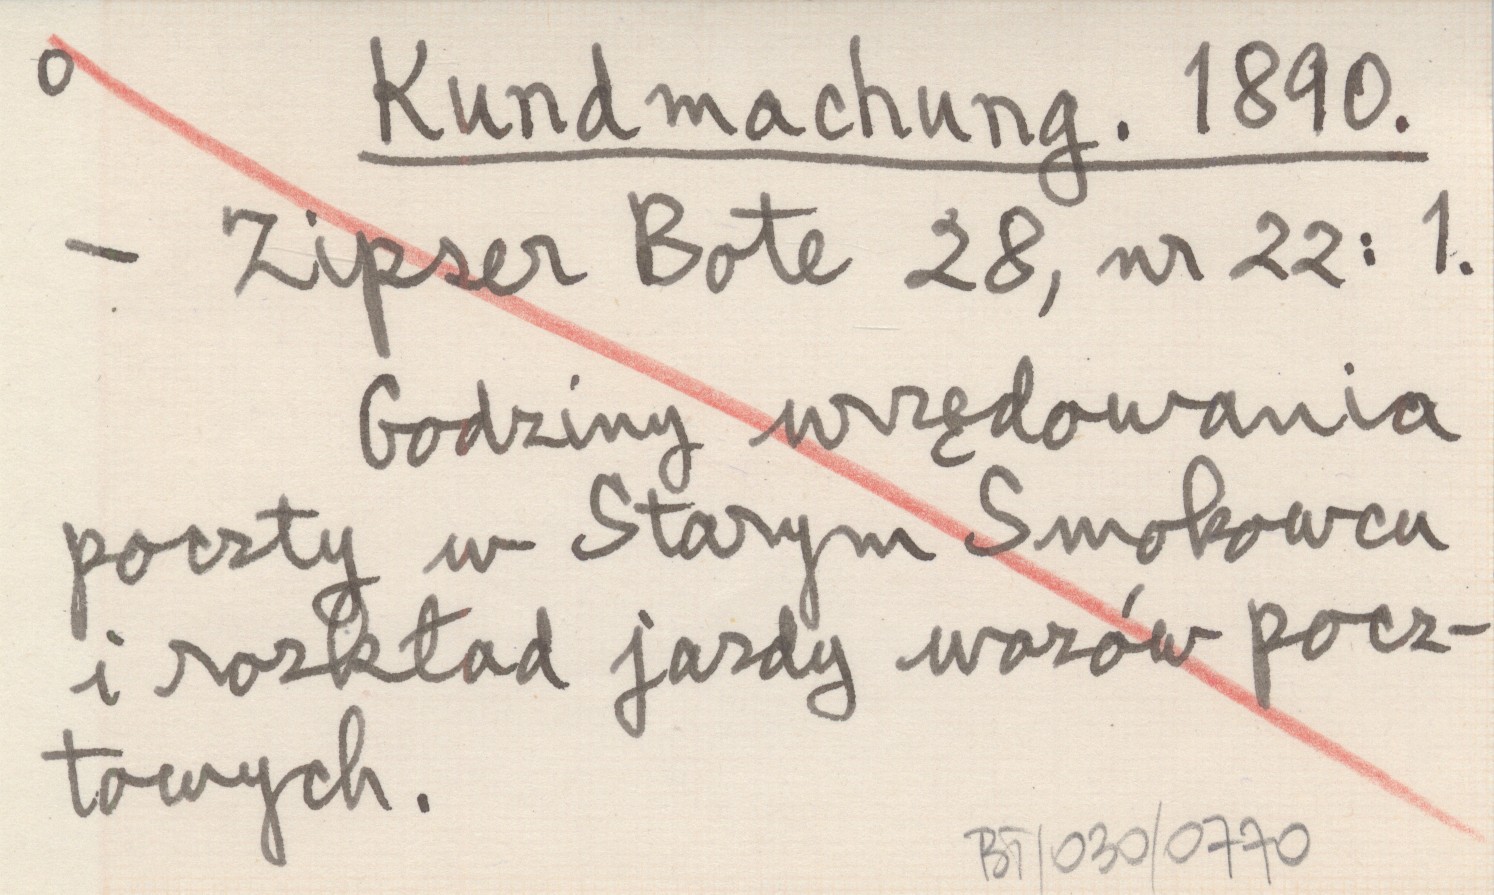 o Kundmachung. 1890.
– Zipser Bote 28, nr 22: 1.
Godziny urzędowania
poczty w Starym Smokowcu
i rozkład jazdy wozów pocz-
towych.
BT/030/0770